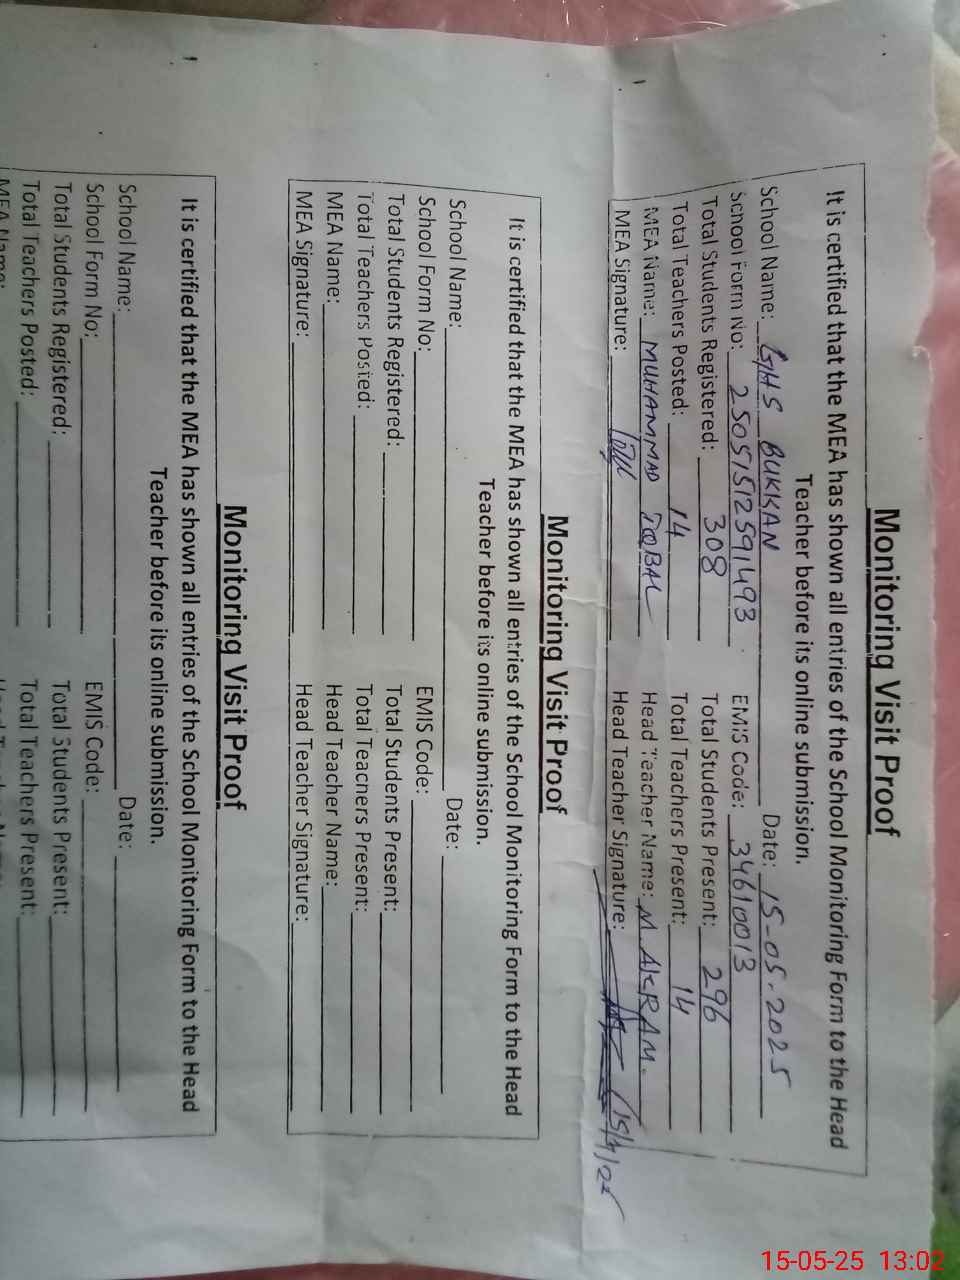 Monitoring Visit Proof
It is certified that the MEA has shown all entries of the School Monitoring Form to the Head
Teacher before its online submission.
School Name: GHS BUKKAN Date: 15-05-2025
School Form No: 25051512591493 EMIS Code: 34610013
Total Students Registered: 308 Total Students Present: 296
Total Teachers Posted: 14 Total Teachers Present: 14
MEA Name: MUHAMMAD IQBAL Head Teacher Name: M. AKRAM.
MEA Signature: Head Teacher Signature:
Monitoring Visit Proof
It is certified that the MEA has shown all entries of the School Monitoring Form to the Head
Teacher before its online submission.
School Name: Date:
School Form No: EMIS Code:
Total Students Registered: Total Students Present:
Total Teachers Posted: Total Teachers Present:
MEA Name: Head Teacher Name:
MEA Signature: Head Teacher Signature:
Monitoring Visit Proof
It is certified that the MEA has shown all entries of the School Monitoring Form to the Head
Teacher before its online submission.
School Name: Date:
School Form No: EMIS Code:
Total Students Registered: Total Students Present:
Total Teachers Posted: Total Teachers Present:
MEA Name:
15-05-25 13:02